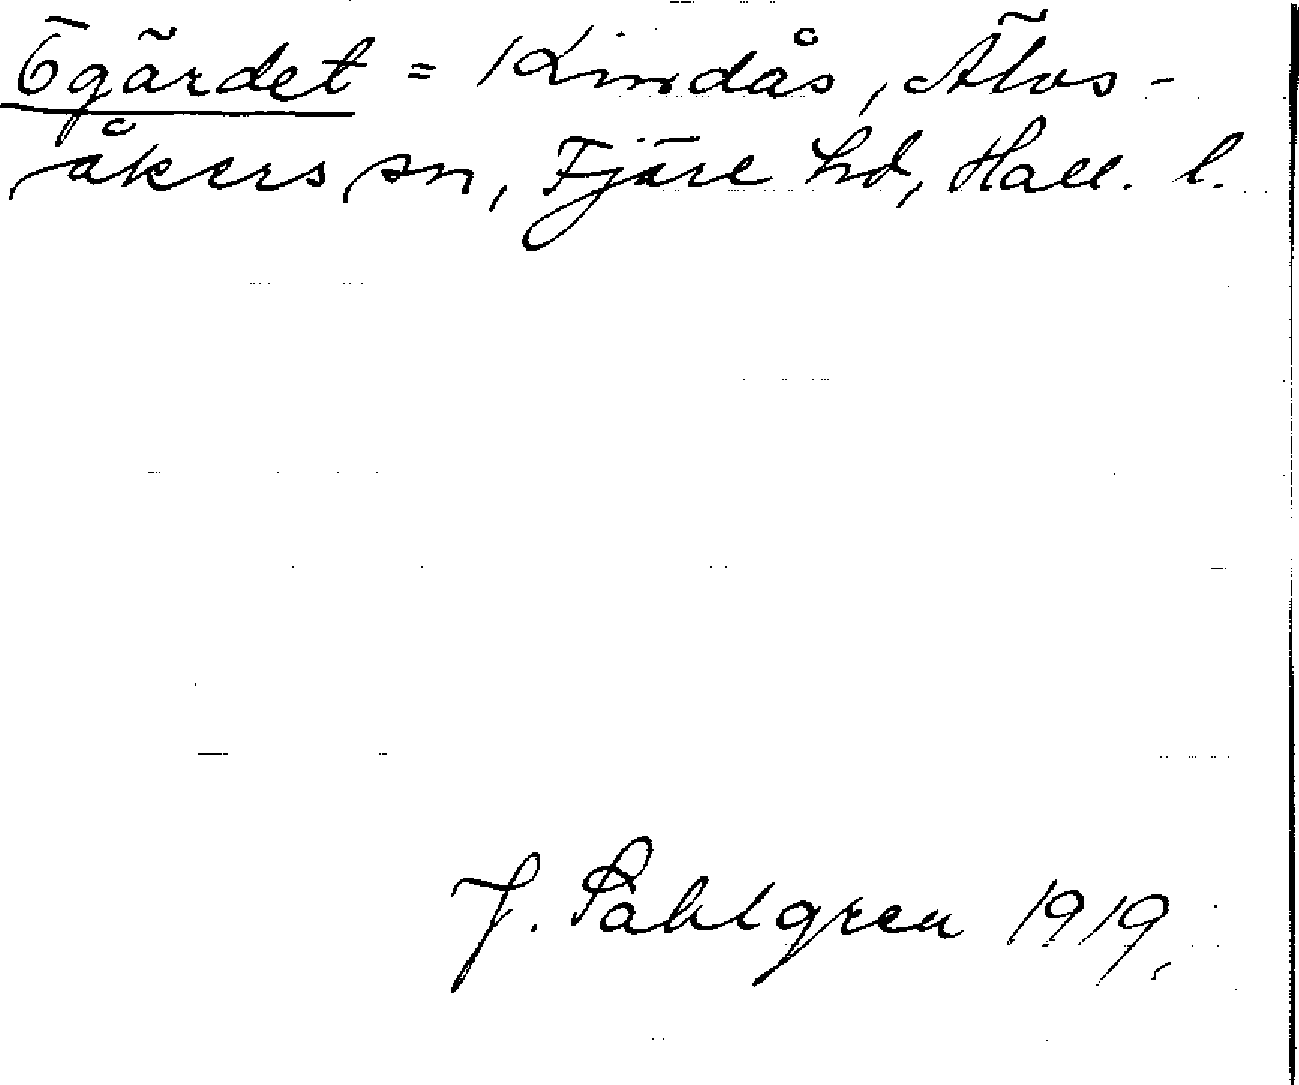 Ögärdet = Kindås, Älvs-
åkers sn, Fjäre hd, Hall. l.
J. Sahlgren 1919.